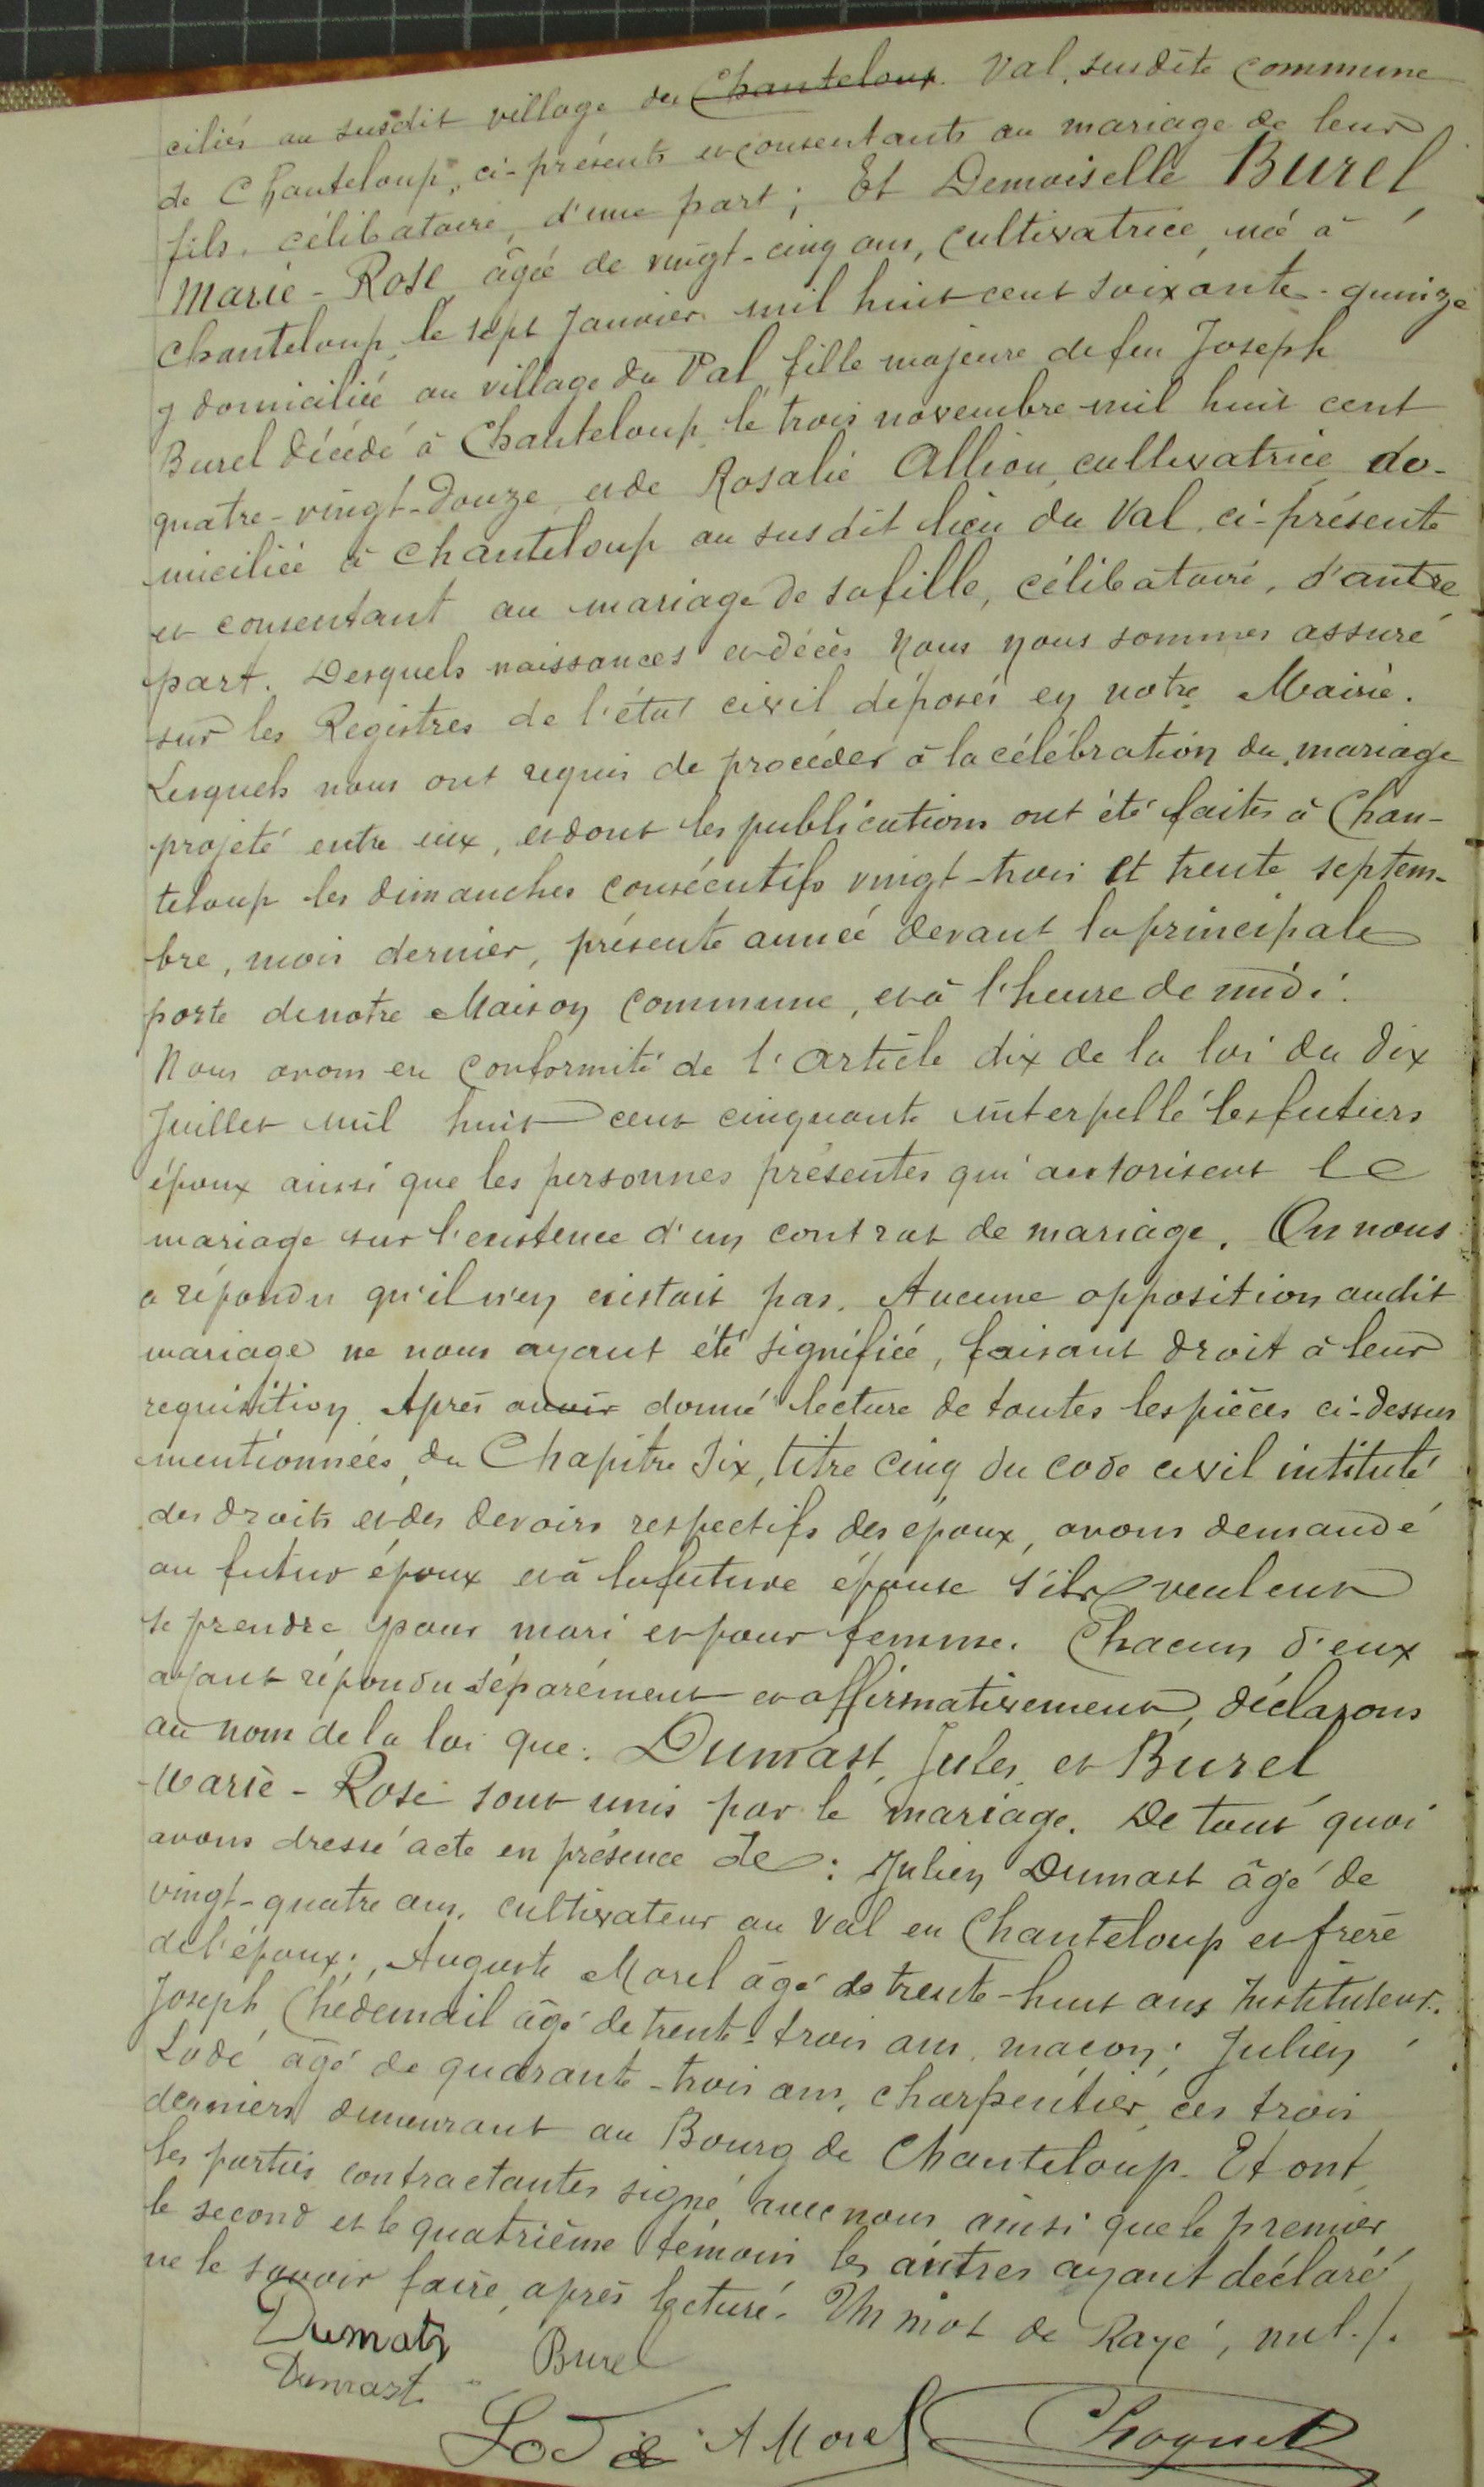 ciliés au susdit village du Chanteloup Val, susdite commune
de Chanteloup, ci-présents et consentants au mariage de leur
fils, célibataire, d'une part; Et Demoiselle Burel
Marie-Rose âgée de vingt-cinq ans, cultivatrice née à
Chanteloup le sept Janvier mil huit cent soixante-quinze
y domiciliée au village du Val fille majeure de feu Joseph
Burel décédé à Chanteloup le trois novembre mil huit cent
quatre-vingt-douze et de Rosalie Allion, cultivatrice do-
miciliée à Chanteloup au susdit lieu du Val, ci-présente
et consentant au mariage de sa fille, célibataire, d'autre
part. Desquels naissances et décès nous nous sommes assuré
sur les Registres de l'état civil déposés en notre Mairie.
Lesquels nous ont requis de procéder à la célébration du mariage
projeté entre eux, et dont les publications ont été faites à Chan-
teloup les dimanches consécutifs vingt-trois et trente septem-
bre, mois dernier, présente année devant la principale
porte de notre Maison Commune, et à l'heure de midi.
Nous avons en conformité de l'article dix de la loi du dix
Juillet mil huit cent cinquante interpellé les futurs
époux ainsi que les personnes présentes qui autorisent le
mariage sur l'existence d'un contrat de mariage. On nous
a répondu qu'il n'en existait pas. Aucune opposition audit
mariage ne nous ayant été signifiée, faisant droit à leur
requisition Après avoir donné lecture de toutes les pièces ci-dessus
mentionnées, du Chapitre Six, titre Cinq du code civil intitulé
des droits et des devoirs respectifs des époux, avons demandé
au futur époux et à la future épouse s'ils veulent
se prendre pour mari et pour femme. Chacun d'eux
ayant répondu séparément et affirmativement, déclarons
au nom de la loi que: Dumast, Jules, et Burel
Marie-Rose sont unis par le mariage. De tout quoi
avons dressé acte en présence de: Julien Dumast âgé de
vingt-quatre ans, cultivateur au Val en Chanteloup et frère
de l'époux; Auguste Morel âgé de trente-huit ans Instituteur;
Joseph Chédemail âgé de trente-trois ans, maçon; Julien
Lodé âgé de quarante-trois ans, charpentier, ces trois
derniers demeurant au Bourg de Chanteloup. Et ont
les parties contractantes signé avec nous ainsi que le premier
le second et le quatrième témoin les autres ayant déclaré
ne le savoir faire, après lecture. Un mot de Rayé, nul./.
Dumats Burel
Dumast
Lodé A Morel Choquet